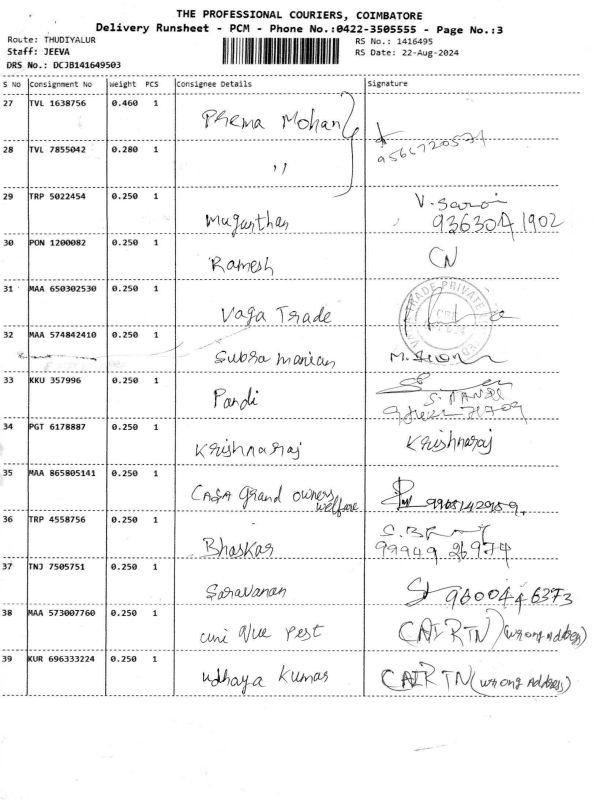 THE PROFESSIONAL COURIERS, COIMBATORE
Delivery Runsheet - PCM - Phone No.:0422-3505555 - Page No.:3
Route: THUDIYALUR
RS No.: 1416495
Staff: JEEVA
RS Date: 22-Aug-2024
DRS No.: DCJB141649503
S No Consignment No Weight PCS Consignee Details Signature
27 TVL 1638756 0.460 1 Prema Mohan
28 TVL 7855042 0.280 1 ,,
29 TRP 5022454 0.250 1 V. Saroi
Muganthan 9363041902
30 PON 1200082 0.250 1 Ramesh CN
31 MAA 650302530 0.250 1 Vaga Trade
32 MAA 574842410 0.250 1 Subramanian
33 KKU 357996 0.250 1 Pandi
34 PGT 6178887 0.250 1 Krishnaraj Krishnaraj
35 MAA 865805141 0.250 1 CASA Grand owners welfare
36 TRP 4558756 0.250 1 Bhaskar 99949 26974
37 TNJ 7505751 0.250 1 Saravanan 9600446373
38 MAA 573007760 0.250 1 uni Que Pest (wrong address)
39 KUR 696333224 0.250 1 udhaya Kumar (wrong Address)